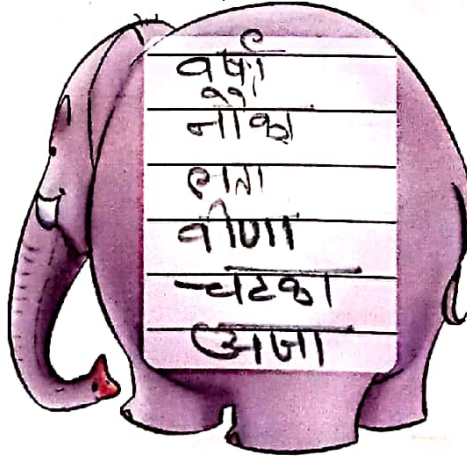 वर्षा
नौका
लता
वीणा
चटका
अजा